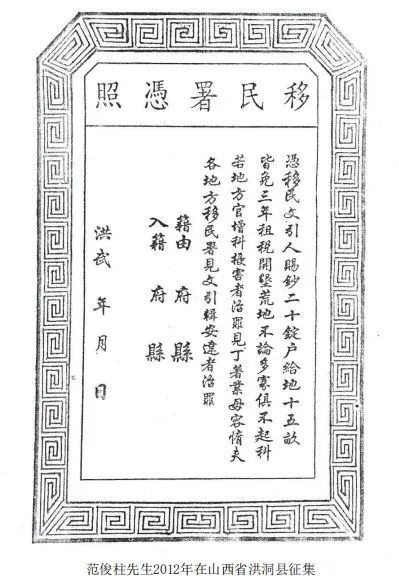 移民署憑照
憑移民文引人賜鈔二十錠户給地十五畝
皆免三年租税開墾荒地不論多寡俱不起科
若地方官增科擾害者治罪見丁著業毋容惰夫
各地方移民署見文引輯安違者治罪
籍由 府 縣
入籍 府 縣
洪武 年 月 日
范俊柱先生2012年在山西省洪洞县征集